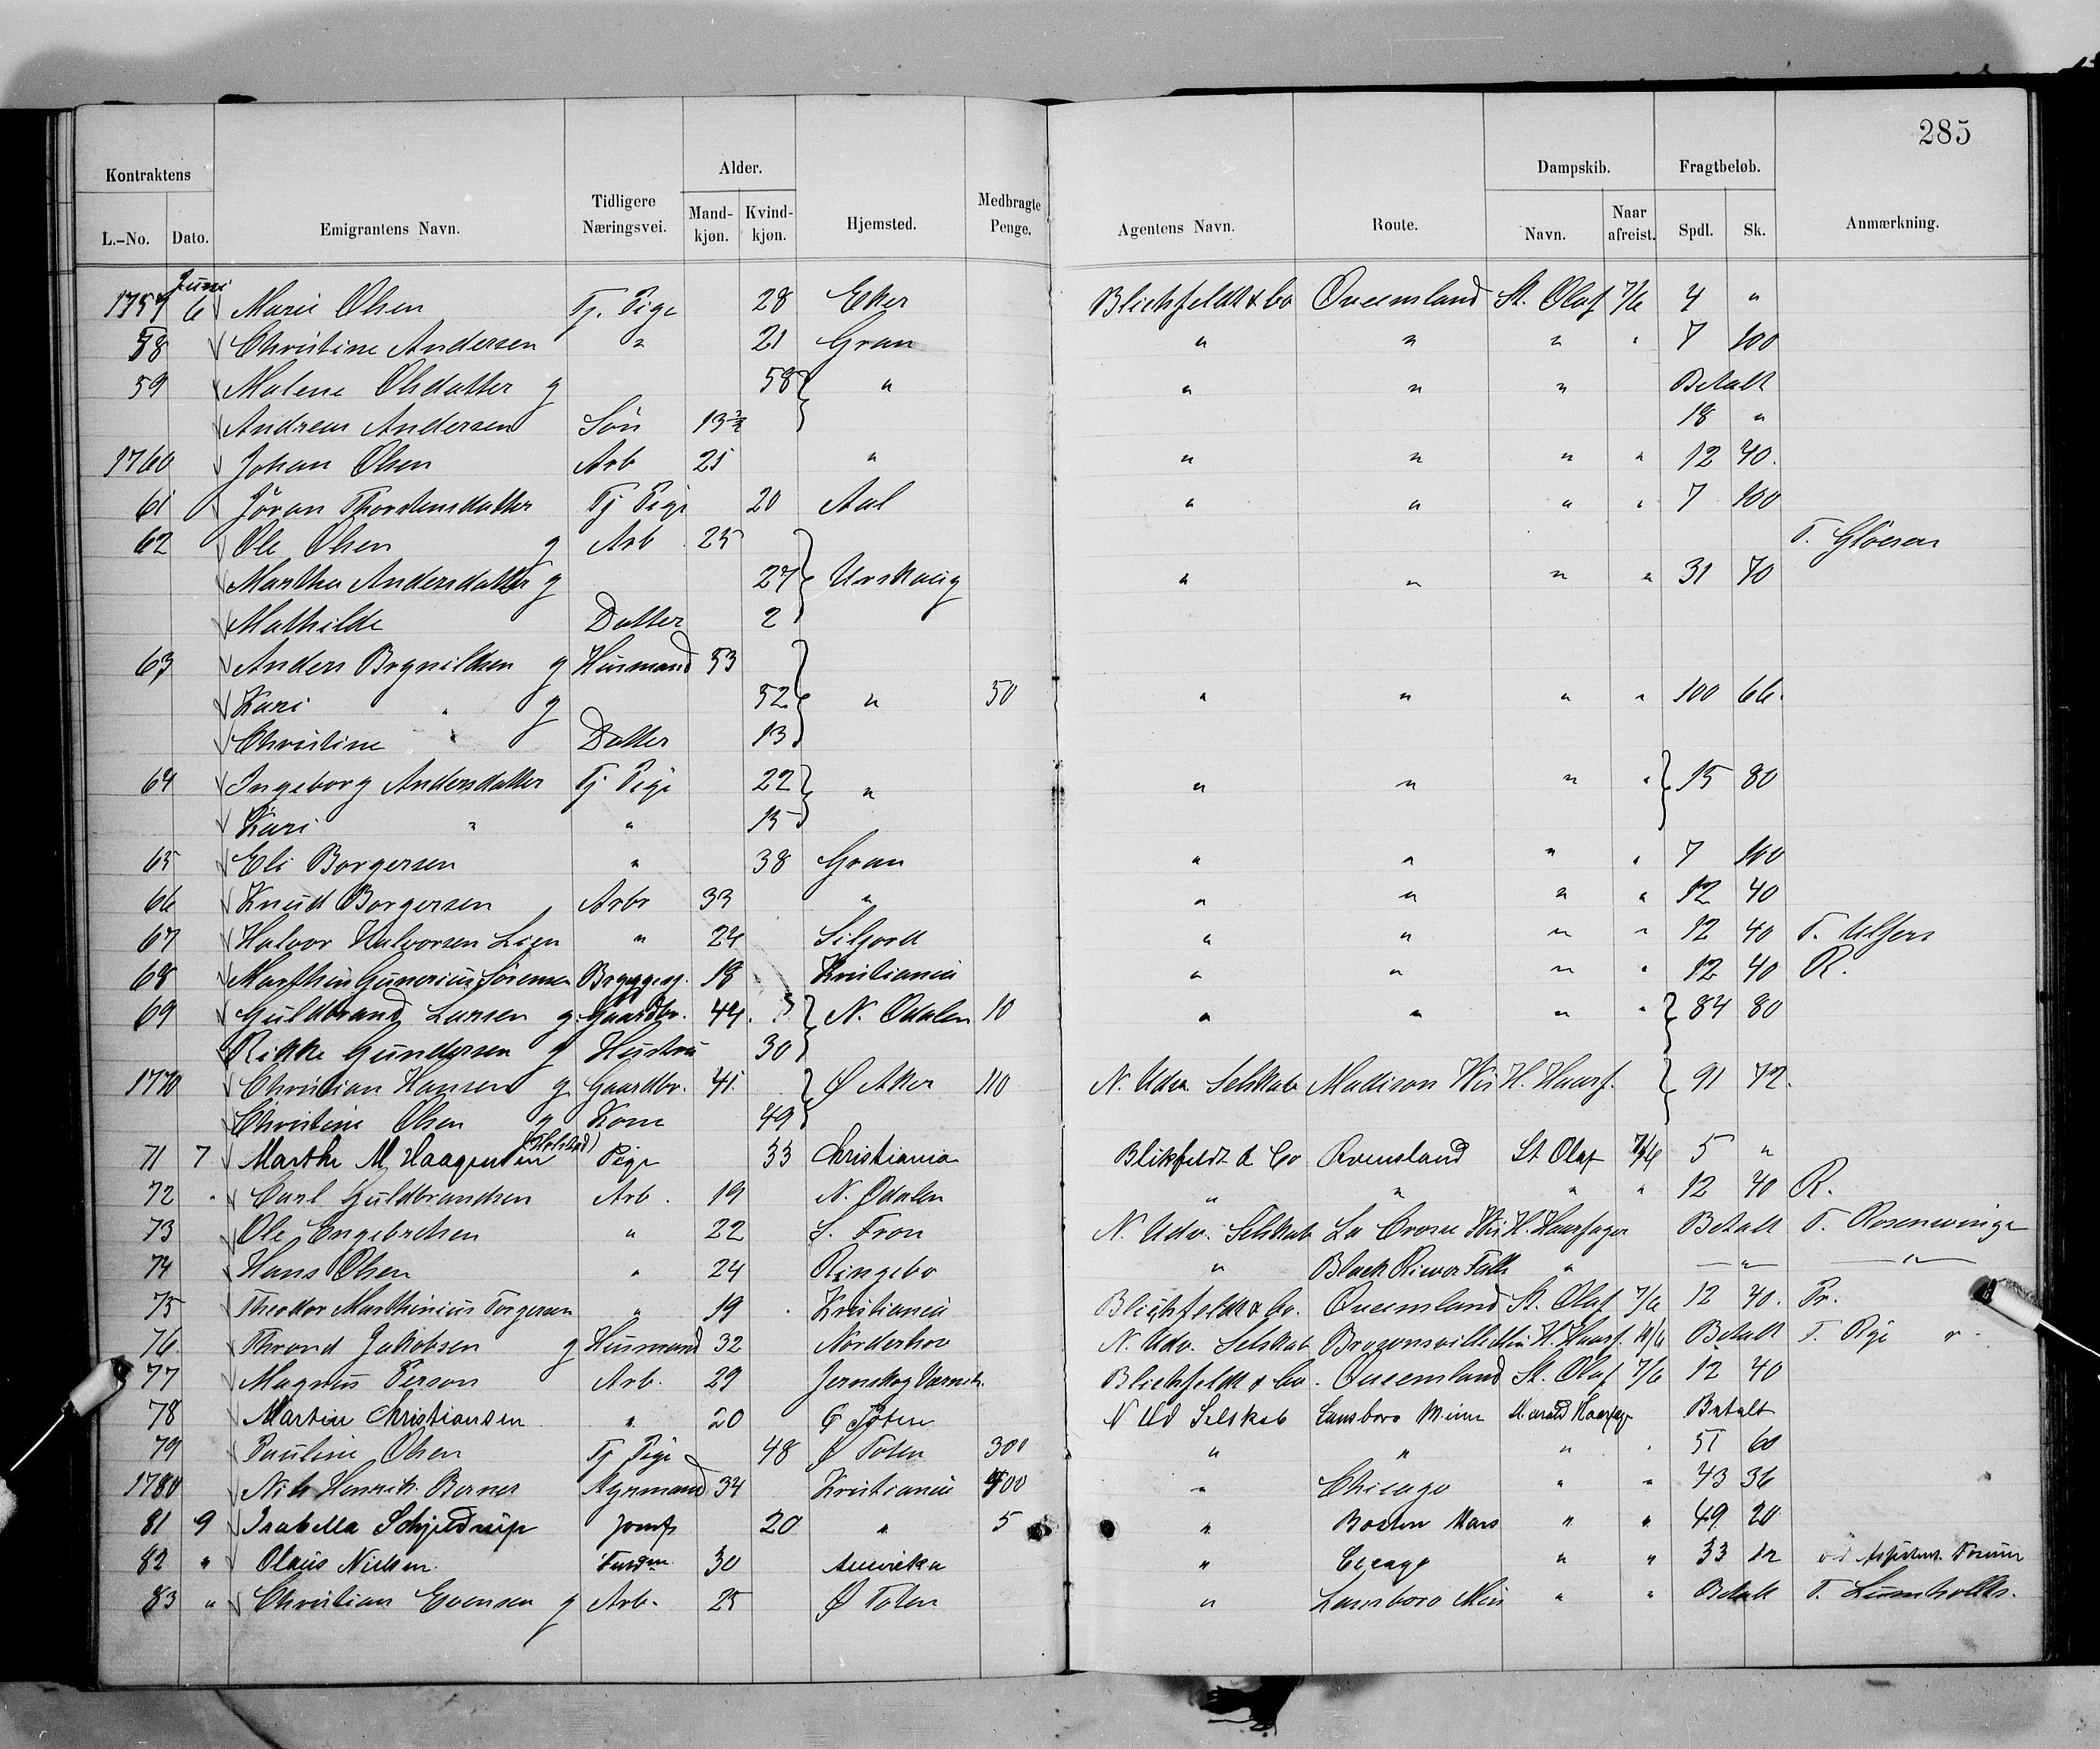 285
Kontraktens Alder. Dampskib. Fragtbeløb.
L.-No. Dato. Emigrantens Navn. Tidligere Næringsvei. Mandkjøn. Kvindkjøn. Hjemsted. Medbragte Penge. Agentens Navn. Route. Navn. Naar afreist. Spdl. Sk. Anmærkning.
Juni
1757 6 Marie Olsen Tj. Pige 28 Eker Blichfeldt & Co Queensland St. Olaf 7/6 4 "
58 Christine Andersen " 21 Gran " " " " 7 100
59 Malene Olsdatter g 58 " " " " Betalt
Andreas Andersen Søn 13½ 18 "
1760 Johan Olsen Arb 25 " " " " " 12 40.
61 Jöran Thorstensdatter Tj Pige 20 Aal " " " " 7 100
62 Ole Olsen g Arb 25 T.
Martha Andersdatter g 27 Urskoug " " " " 31 70
Mathilde Datter 2
63 Anders Brynildsen g Husmand 53
Kari " g 52 " 50 " " " " 100 66.
Christine " Datter 13
64 Ingeborg Andersdatter Tj Pige 22 " " " " " 15 80
Kari " " 15
65 Eli Borgersen " 38 Gran " " " " 7 100
66 Knud Borgersen Arbr 33 " " " " " 12 40
67 Halvor Halvorsen Lien " 24 Siljord " " " " 12 40 T.
68 Marthin Gunerius Sörensen Bryggerg. 18 Kristiania " " " " 12 40 R.
69 Guldbrand Larsen g. Gaardbr. 44. N. Odalen 10 " " " " 84 80
Rikke Gundersen g Hustru 30
1770 Christian Hansen g Gaardbr. 41. Ø Aker 110 N. Udv. Selskab Madison Wis H. Haarf. 91 72.
Christine Olsen g Kone 49
71 7 Marthe M Haagensen Pige 33 Christiania Blikfeldt & Co Qvensland St Olaf 7/6 5 "
72 " Carl Guldbrandsen Arb. 19 N. Odalen " " " " 12 40 R.
73 Ole Engebretsen " 22 S. Fron N. Udv. Selskab La Crosse Wis H. Haarfager Betalt T. Rosenvinge
74 Hans Olsen " 24 Ringebo " Black Riewer Falls " — " — — " —
75 Theodor Marthinius Torgersen " 19 Kristiania Blichfeldt & Co. Queensland St. Olaf 7/6 12 40. Pr.
76 Thrond Jakobsen g Husmand 32 Norderhov N. Udv. Selskab Min H. Haarf. Betalt T.
77 Magnus Person Arb. 29 Jernskog Værml. Blichfeldt & Co. Queensland St. Olaf 7/6 12 40
78 Martin Christiansen " 20 Ø Toten N Ud Selskab Lansboro Minn Harald Haarfag Betalt
79 Pauline Olsen Tj Pige 48 Ø Toten 300 " " " " 51 60
1780 Nils Henrik Berner Styrmand 34 Kristiania 400 " Chicago " " 43 36
81 9 Isabella Schjeldrup Jomf 20 " 5 " Boston Mars " " 49 20
82 " Olaus Nielsen 30 Amerika " Cicago " " 33 12
83 " Christian Evensen g Arb. 25 Ø Toten " Lansboro Min " " Betalt T.